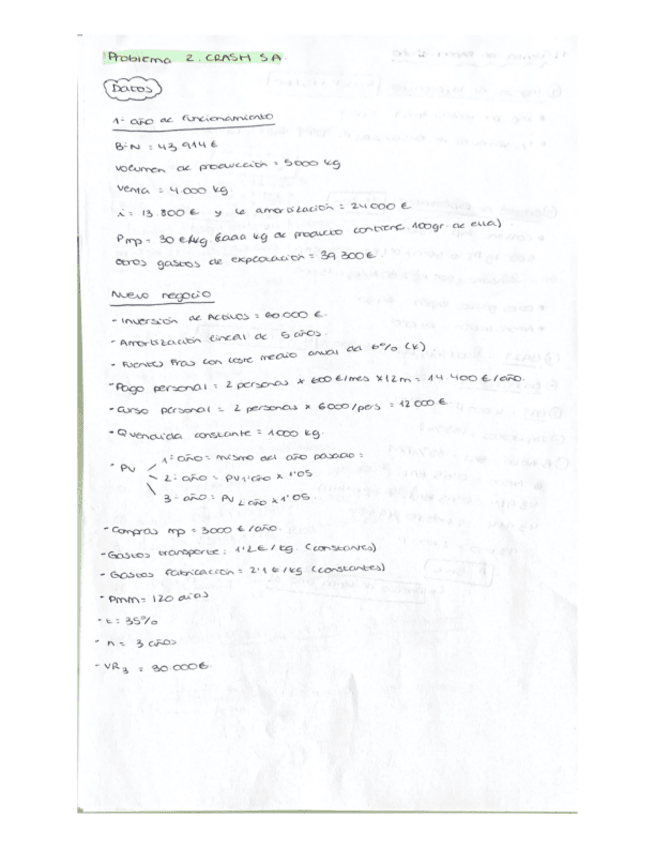 Problema 2. CRASH SA.
Datos
1º año de funcionamiento
BºN = 43.914 €
Volumen de producción = 5000 kg
Venta = 4.000 kg.
i = 13.800 € y la amortización = 24000 €
Pmp = 30 €/kg (cada kg de producto contiene 100gr. de ella)
Otros gastos de explotación = 39.300 €
Nuevo negocio
- Inversión de Activos = 60.000 €.
- Amortización lineal de 5 años.
- Fuentes Fras con coste medio anual del 6% (K).
- Pago personal = 2 personas x 600 €/mes x 12m = 14.400 €/año.
- Curso personal = 2 personas x 6000/pers = 12000 €
- Que vendida constante = 1000 kg.
- PV
1º año = mismo del año pasado =
2º año = PV 1º año x 1'05
3º año = PV 2 año x 1'05.
- Compras mp = 3000 €/año.
- Gastos transporte = 1'2 €/kg. (constantes)
- Gastos fabricación = 2'1 €/kg (constantes)
- PMM = 120 días
- t = 35%
- n = 3 años
- VR3 = 30.000 €.